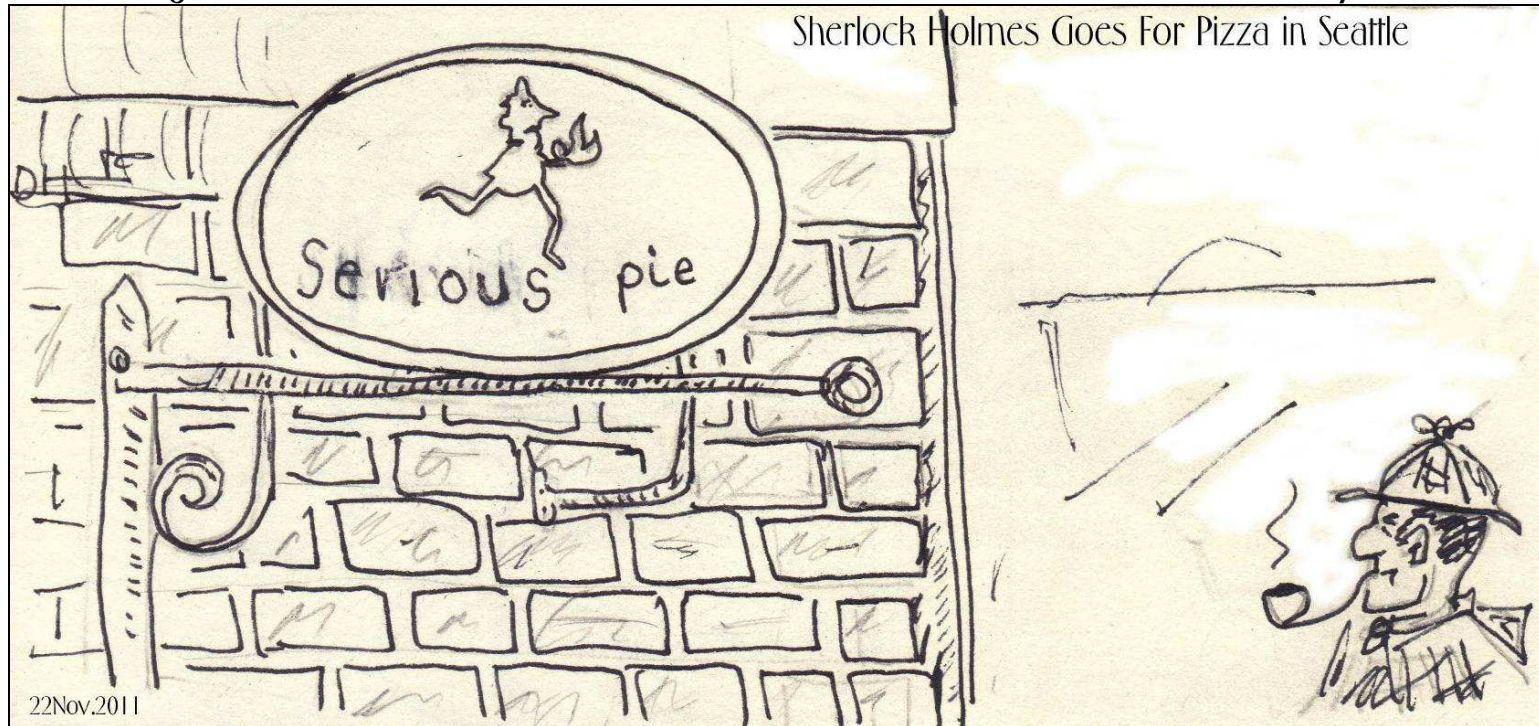 Sherlock Holmes Goes For Pizza in Seattle
Serious pie
22Nov.2011